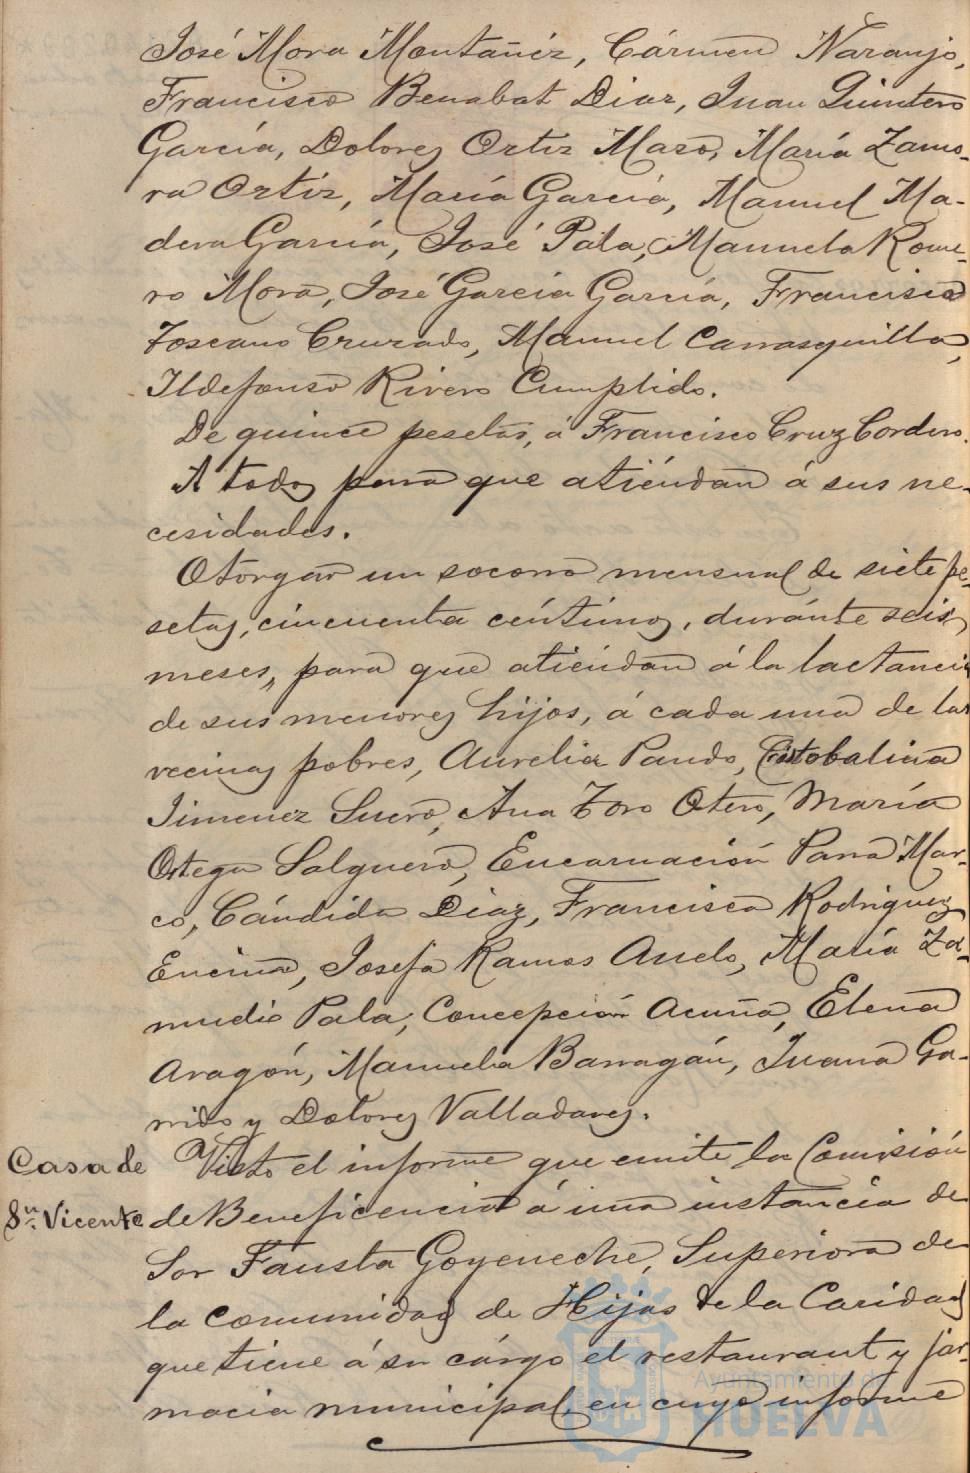 José Mora Montañéz, Cármen Naranjo,
Francisco Benabat Diaz, Juan Quintero
García, Dolores Ortiz Mazo, María Zamo-
ra Ortiz, María García, Manuel Ma-
dera García, José Pala, Manuela Rome-
ro Mora, José García García, Francisca
Toscano Cruzado, Manuel Carrasquilla,
Ildefonso Rivero Cumplido.
De quince pesetas, á Francisco Cruz Cordero.
A todos para que atiéndan á sus ne-
cesidades.
Otorgar un socorro mensual de siete pe-
setas, cincuenta céntimos, duránte seis
meses, para que atiéndan á la lactancia
de sus menores hijos, á cada una de las
vecinas pobres, Aurelia Pando, Cristobalina
Jimenez Suero, Ana Toro Otero, María
Ortega Salguero, Encarnación Parra Mar-
co, Cándida Diaz, Francisca Rodriguez
Encina, Josefa Ramos, María Za-
mudio Pala, Concepción Acuña, Elena
Aragón, Manuela Barragán, Juana Ga-
rrido y Dolores Valladares.
Casa de
Sn. Vicente
Visto el informe que emite la Comisión
de Beneficencia á una instancia de
Sor Fausta Goyeneche, Superiora de
la comunidad de Hijas de la Caridad
que tiene á su cárgo el restaurant y far-
macia municipal, en cuyo informe
Ayuntamiento de
HUELVA